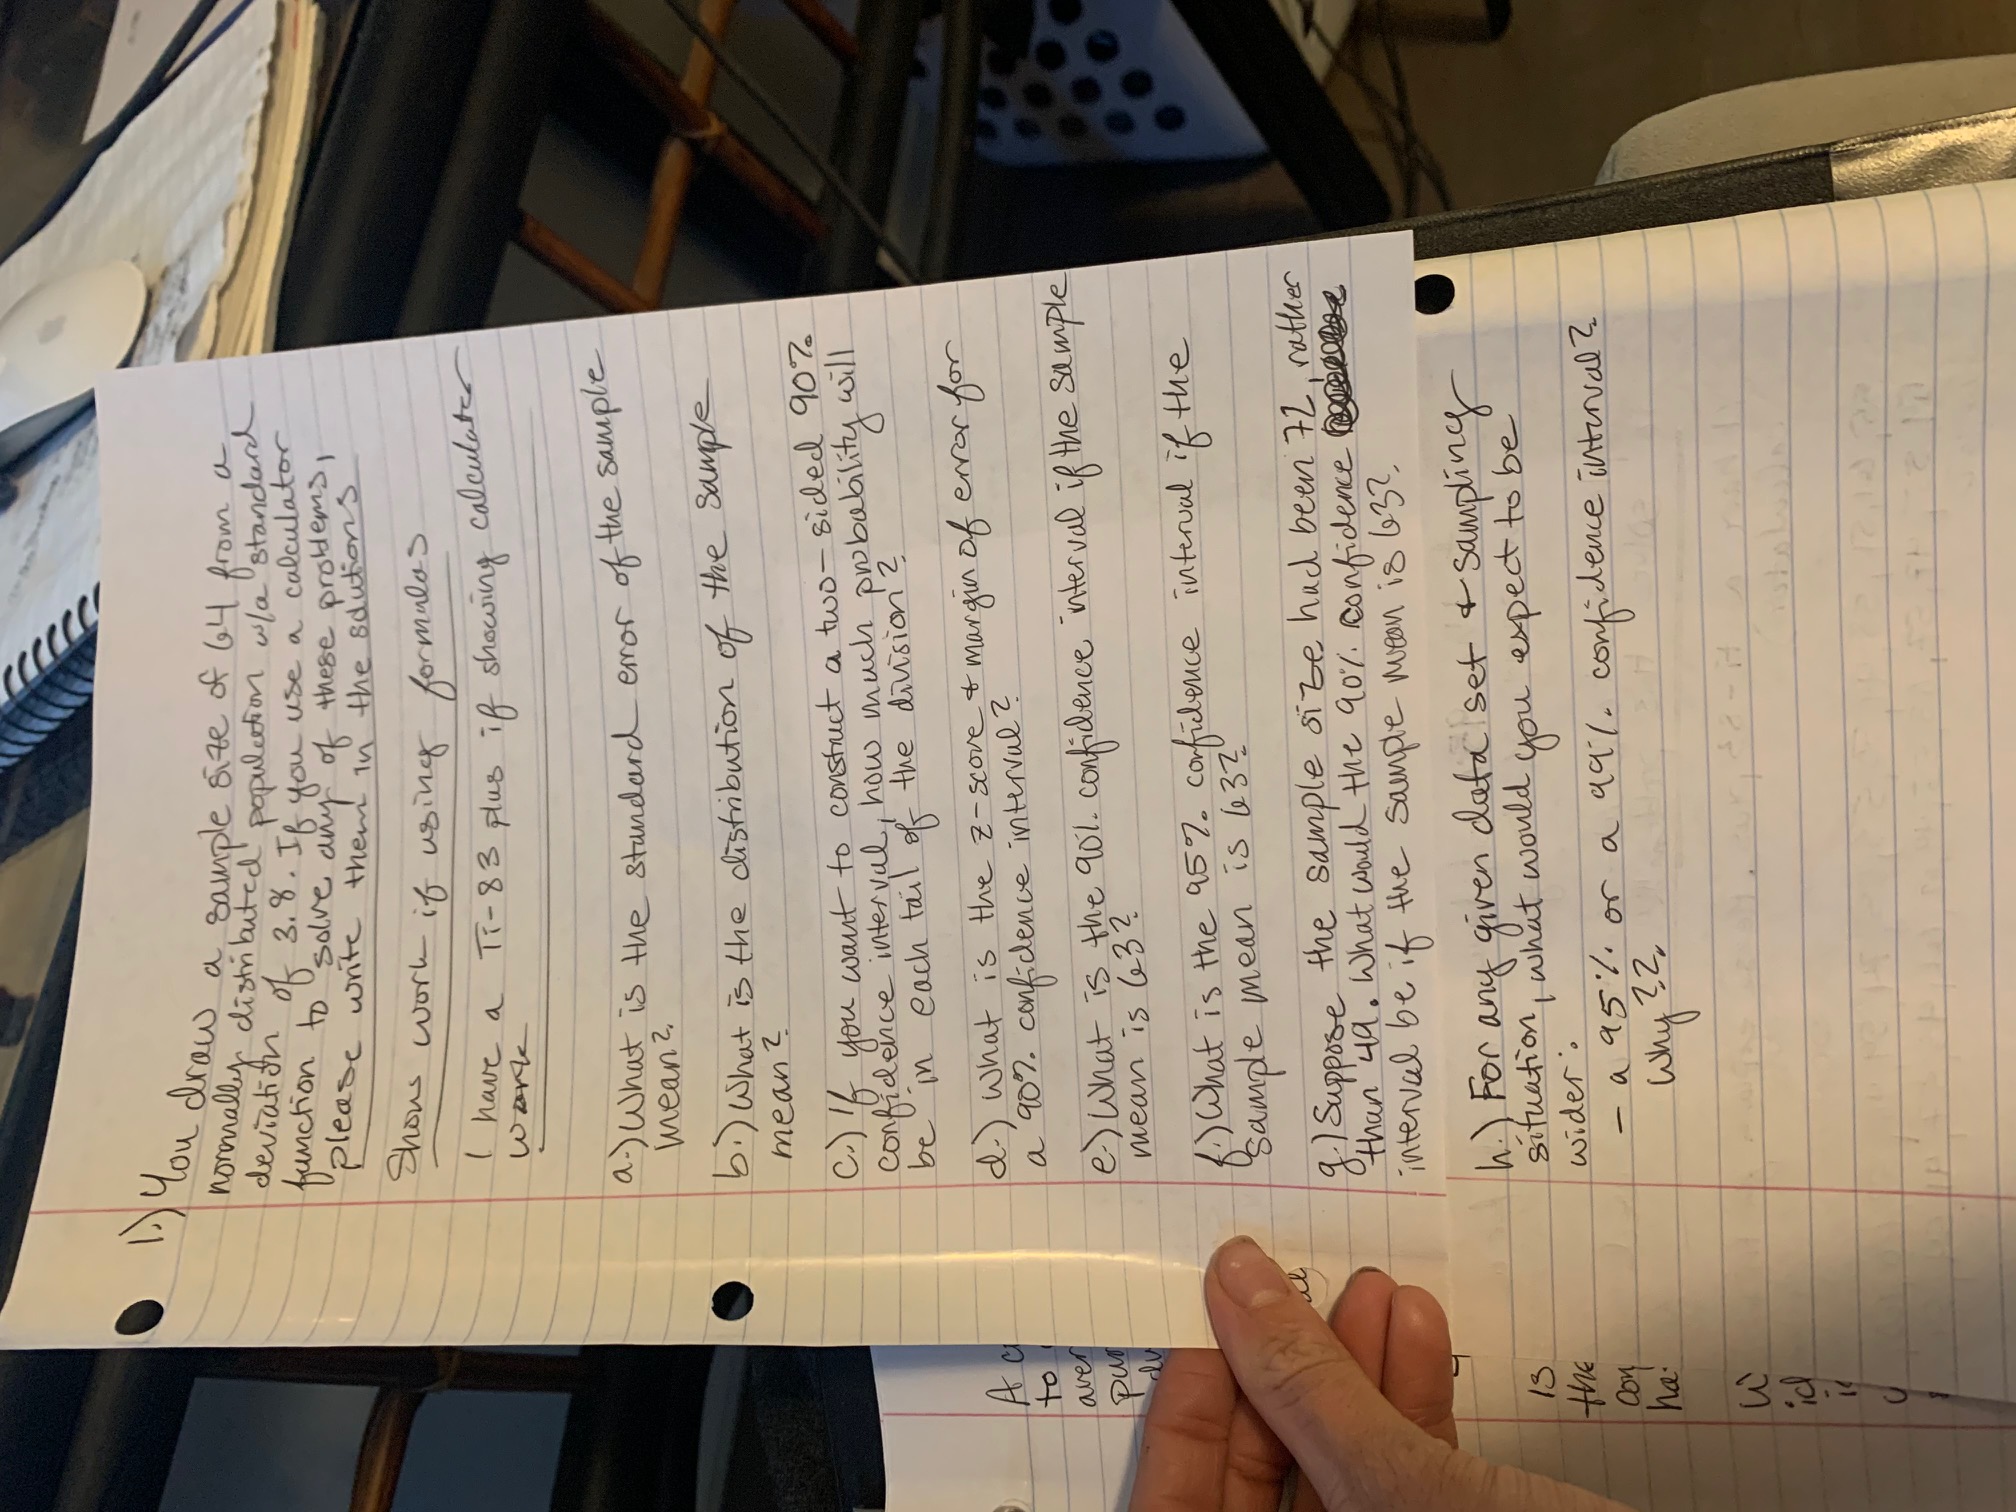 1.) You draw a sample size of 64 from a
normally distributed population w/a standard
deviation of 3.8. If you use a calculator
function to solve any of these problems,
please write them in the solutions
Show work if using formulas
I have a Ti-83 plus if showing calculator
work
a.) What is the standard error of the sample
mean?
b.) What is the distribution of the sample
mean?
c.) If you want to construct a two-sided 90%
confidence interval, how much probability will
be in each tail of the division?
d.) What is the z-score & margin of error for
a 90% confidence interval?
e.) What is the 90% confidence interval if the sample
mean is 63?
f.) What is the 95% confidence interval if the
sample mean is 63?
g.) Suppose the sample size had been 72, rather
than 49. What would the 90% confidence
interval be if the sample mean is 63?
h.) For any given data set & sampling
situation, what would you expect to be
wider:
- a 95% or a 99% confidence interval?
Why??
A
to
aver
pur
du
is
the
con
ha